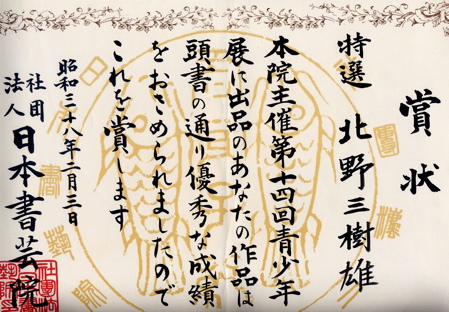 賞状
特選 北野三樹雄
本院主催第十四回青少年
展に出品のあなたの作品は
頭書の通り優秀な成績
をおさめられましたので
これを賞します
昭和三十八年二月三日
社団法人 日本書芸院